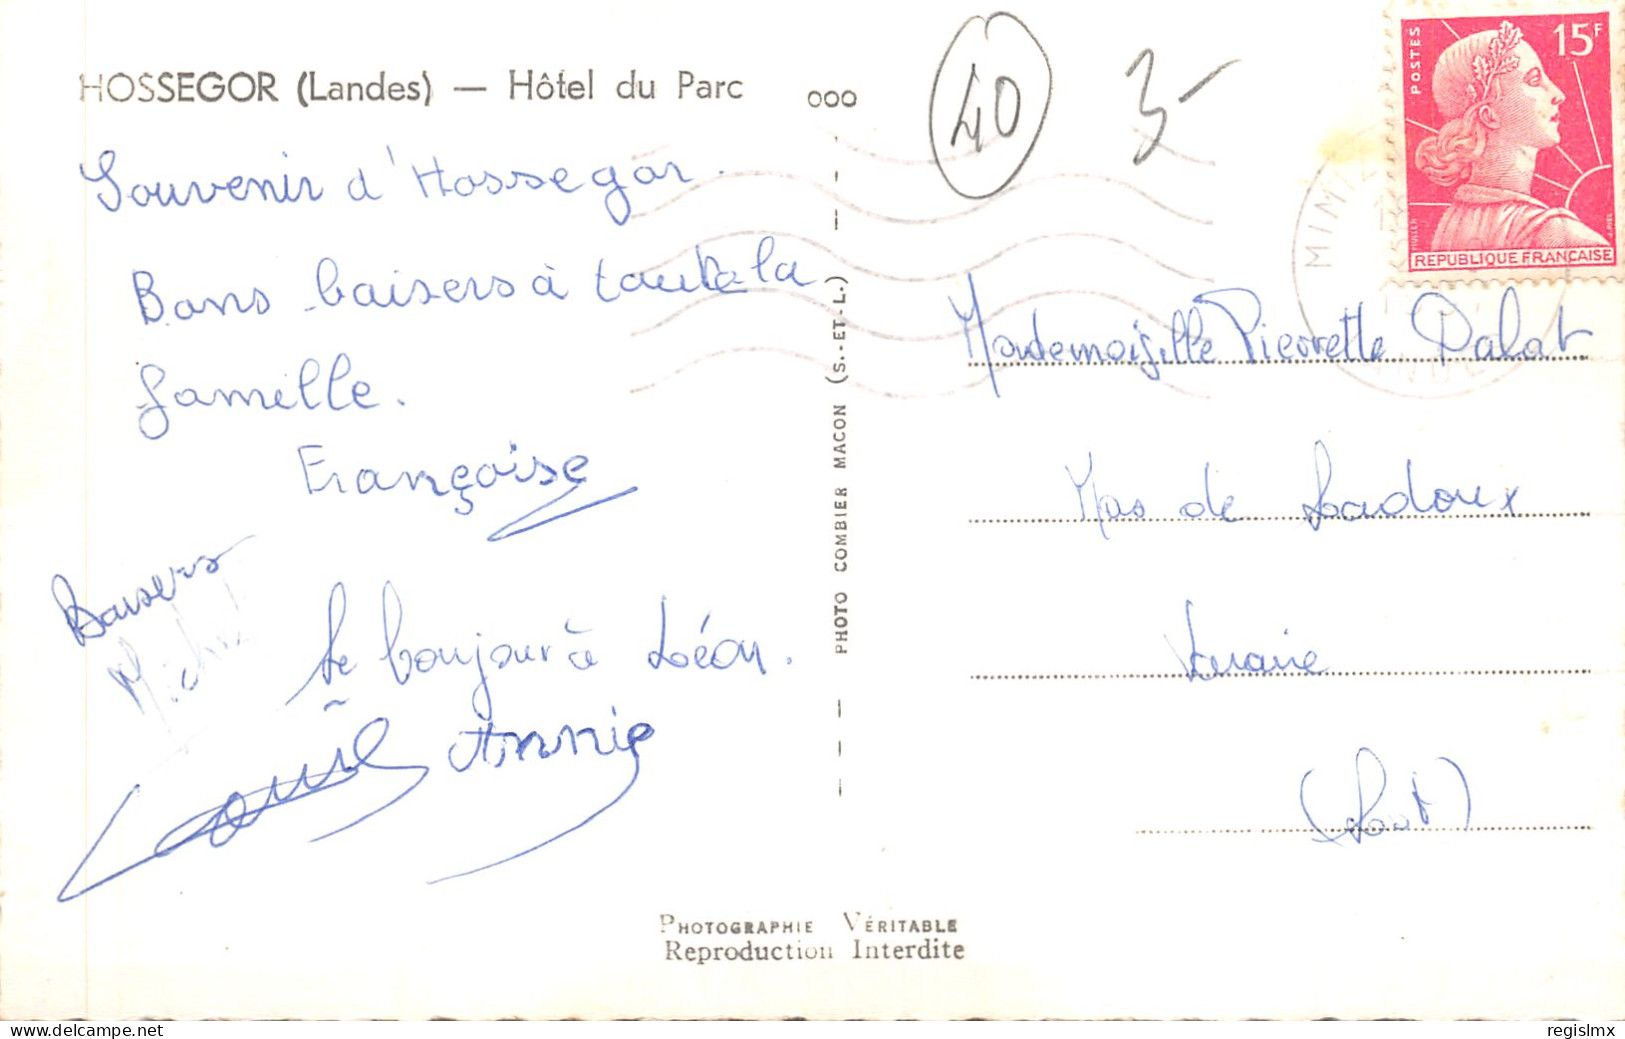 HOSSEGOR (Landes) — Hôtel du Parc
000
40
3-
Souvenir d'Hossegor.
Bons baisers à toute la
famille.
Françoise
Baisers
Michel
le bonjour à Léon.
Annie
PHOTO COMBIER MACON (S.-ET-L.)
POSTES
15F
MULLER
REPUBLIQUE FRANÇAISE
MIMIZ
Mademoiselle Pierrette Palat
Mas de Ladoux
Laraire
(Lot)
PHOTOGRAPHIE VÉRITABLE
Reproduction Interdite
delcampe.net
regislmx